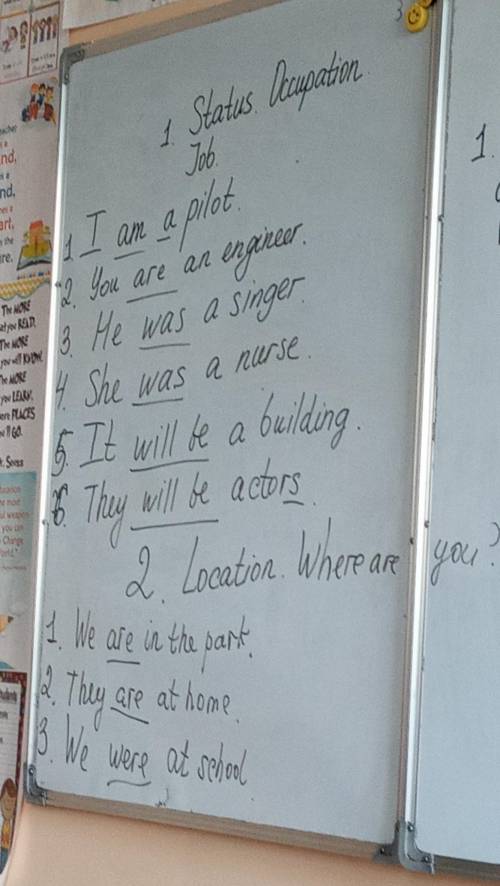 1. Status. Occupation.
Job.
1 I am a pilot.
2. You are an engineer.
3. He was a singer.
4. She was a nurse.
5. It will be a building.
6. They will be actors.
2. Location. Where are you?
1. We are in the park.
2. They are at home.
3. We were at school.
1.
The MORE
READ,
The MORE
you will KNOW.
The MORE
you LEARN,
PLACES
GO.
Seuss